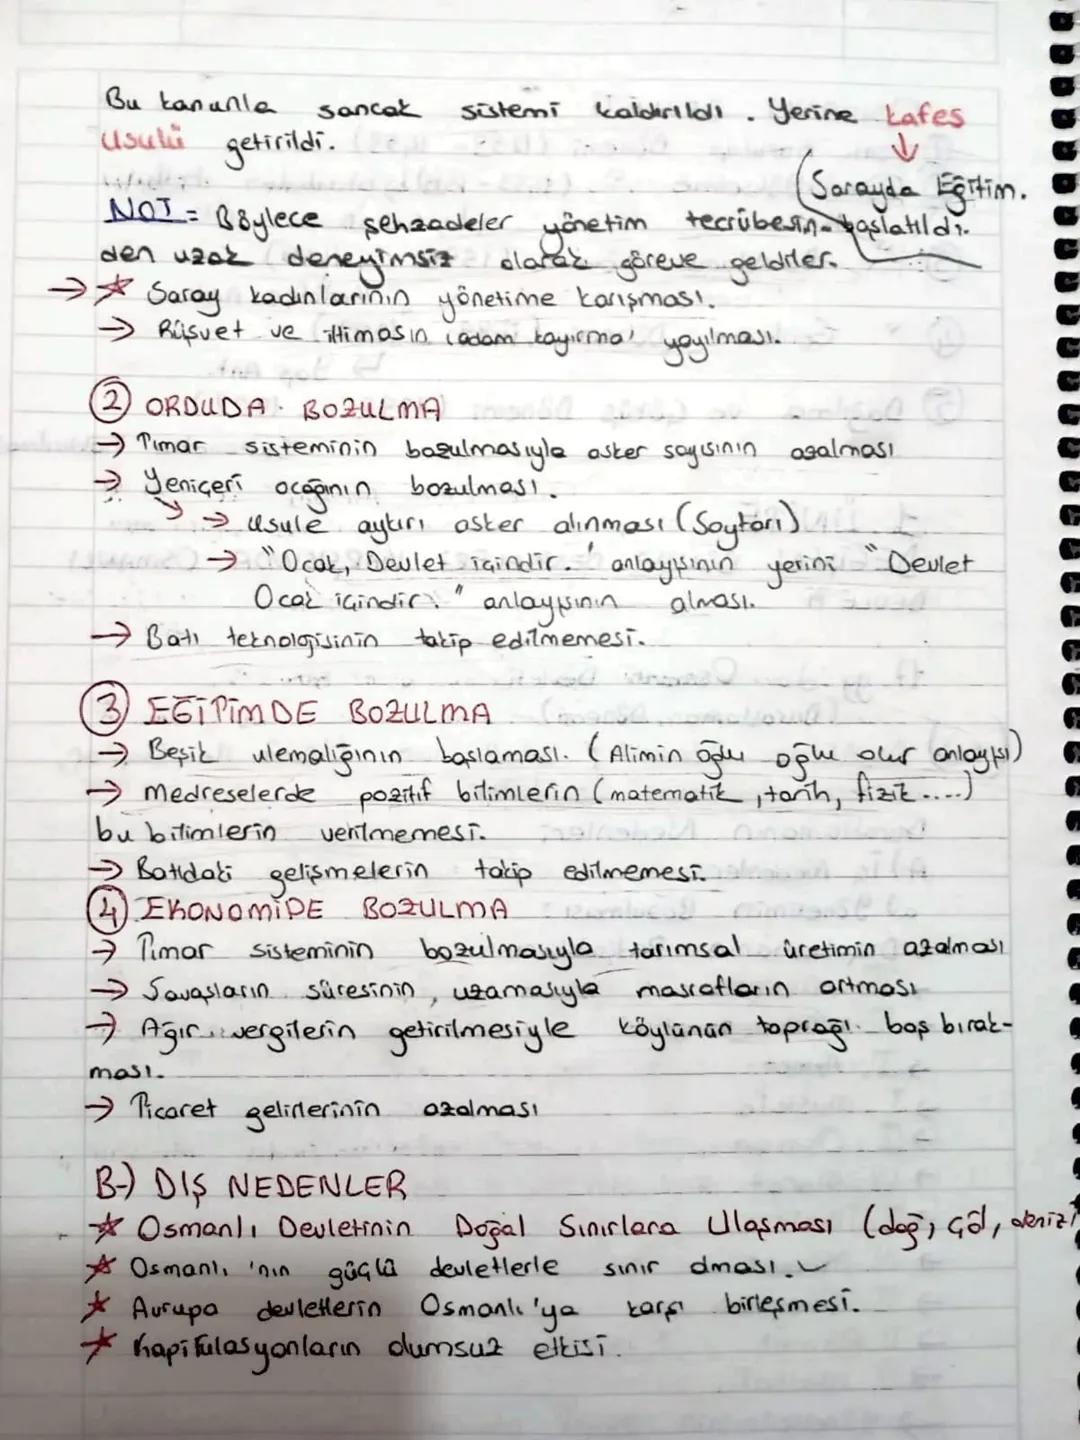 Bu kanunla sancak sistemi kaldırıldı. Yerine kafes
usulü getirildi.
(Sarayda Eğitim.
başlatıldı.
NOT = Böylece şehzadeler yönetim tecrübesin-
den uzak deneyimsiz olarak göreve geldiler.
→ ☆ Saray kadınlarının yönetime karışması.
→ Rüşvet ve iltimasın (adam kayırma) yayılması.
② ORDUDA BOZULMA
→ Tımar sisteminin bozulmasıyla asker sayısının azalması
→ Yeniçeri ocağının bozulması.
→ usule aykırı asker alınması (Soytarı)
→ "Ocak, Devlet içindir." anlayışının yerini "Devlet
Ocak içindir." anlayışının alması.
→ Batı teknolojisinin takip edilmemesi.
③ EĞİTİMDE BOZULMA
→ Beşik ulemalığının başlaması. (Alimin oğlu oğlu olur anlayışı)
→ Medreselerde pozitif bilimlerin (matematik, tarih, fizik....)
bu bilimlerin verilmemesi.
→ Batıdaki gelişmelerin takip edilmemesi.
④ EKONOMİDE BOZULMA
→ Tımar sisteminin bozulmasıyla tarımsal üretimin azalması
→ Savaşların süresinin, uzamasıyla masrafların artması
→ Ağır vergilerin getirilmesiyle köylünün toprağı boş bırak-
ması.
→ Ticaret gelirlerinin azalması
B-) DIŞ NEDENLER
☆ Osmanlı Devletinin Doğal Sınırlara Ulaşması (dağ, göl, deniz)
☆ Osmanlı'nın güçlü devletlerle sınır olması.
☆ Avrupa devletlerin Osmanlı'ya karşı birleşmesi.
☆ Kapitulasyonların olumsuz etkisi.